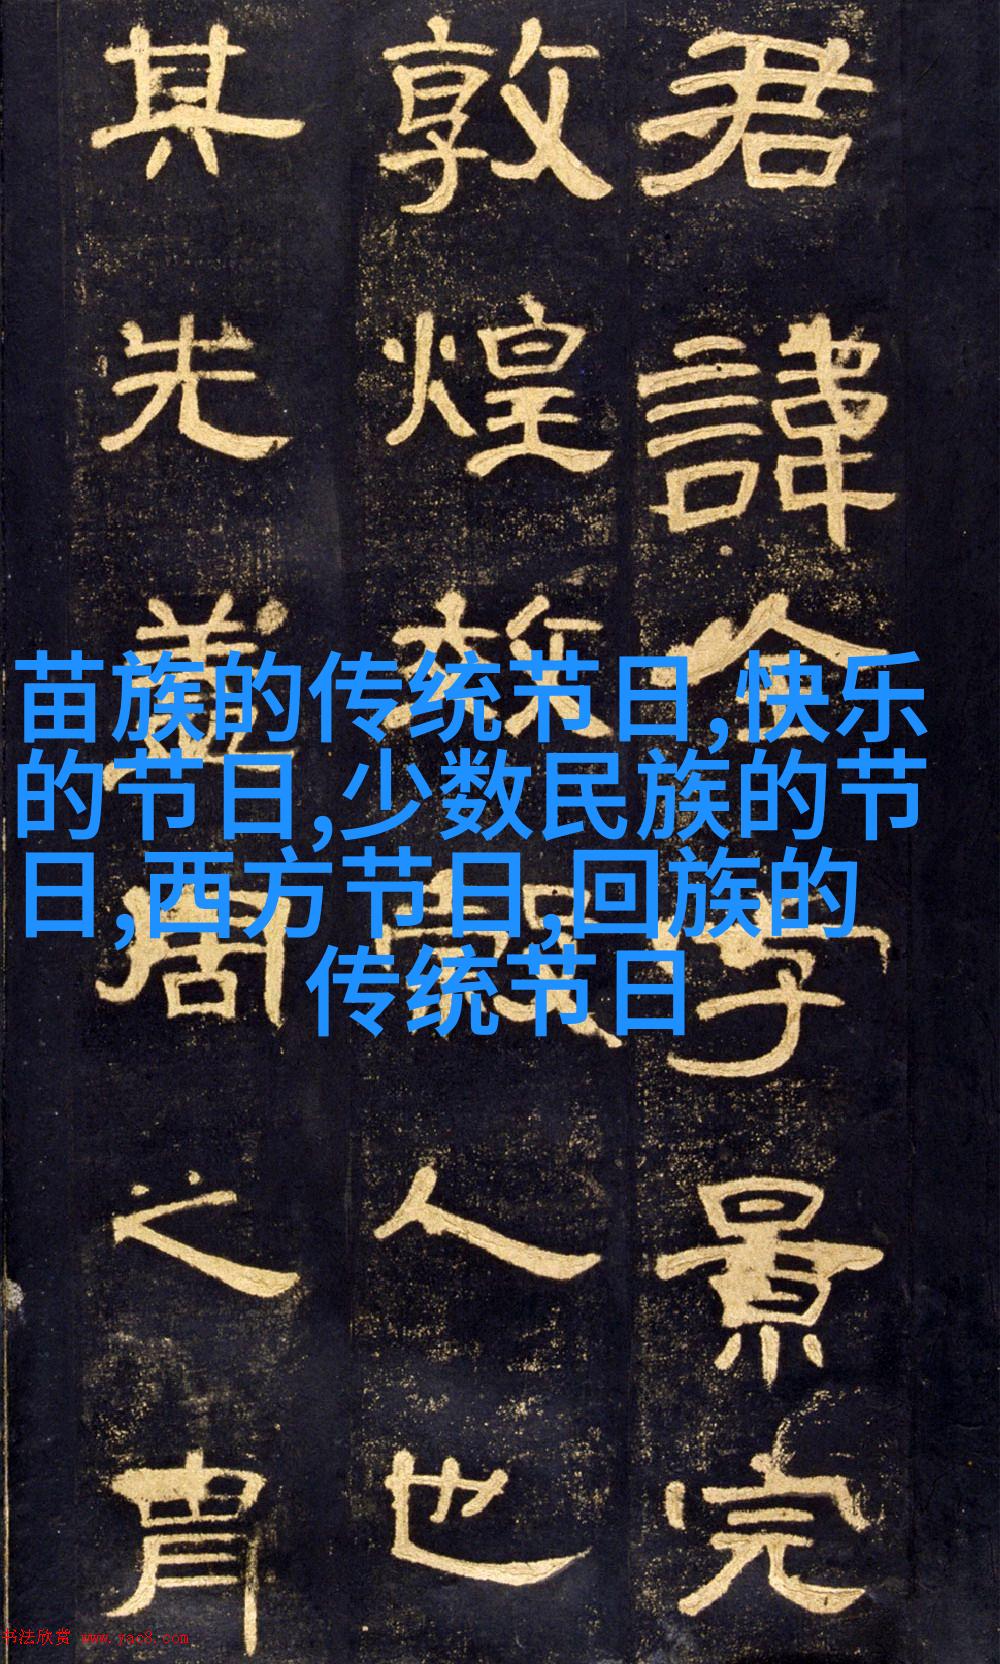 君諱全字景完
敦煌效穀人也
其先蓋周之胄
苗族的传统节日,快乐
的节日,少数民族的节
日,西方节日,回族的
传统节日
书法欣赏 www.yac8.com